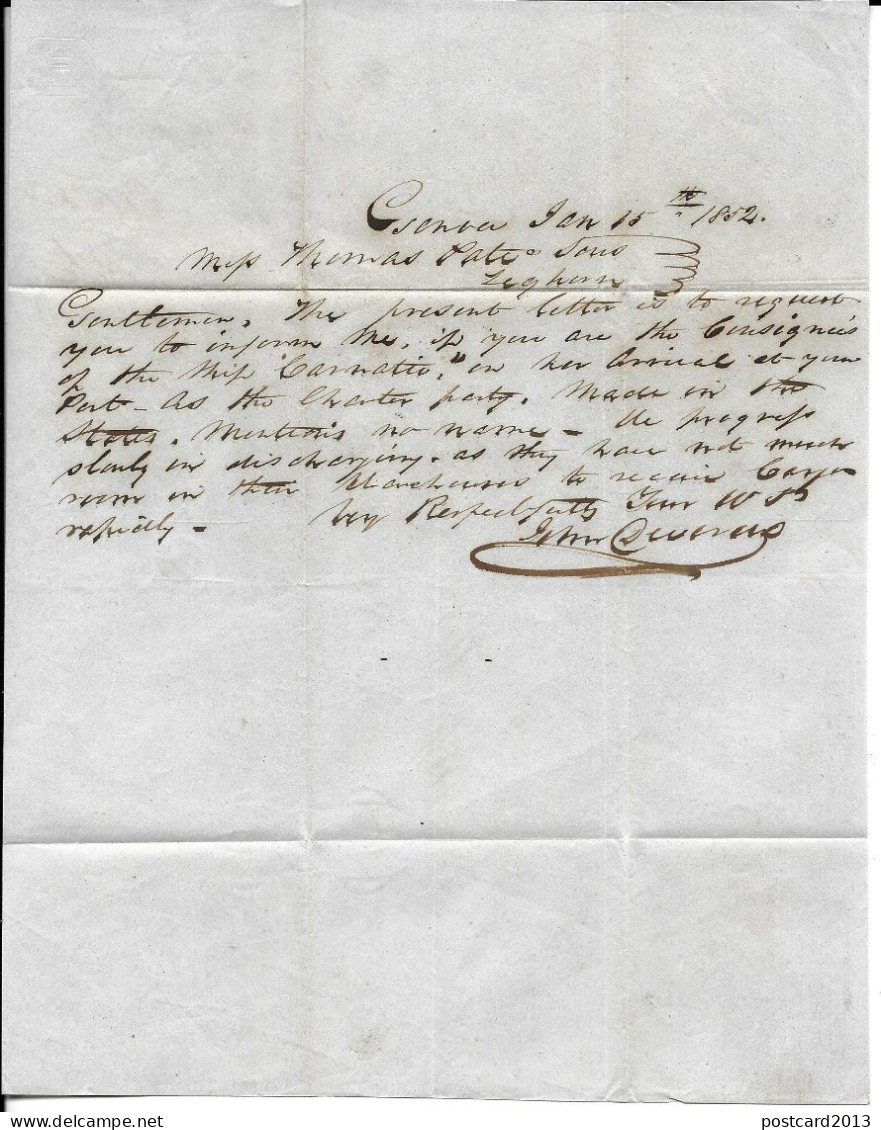 Genoa Jan 15th 1852.
Mess Thomas Pate & Sons
Leghorn
Gentlemen, The present letter is to request
you to inform Me, if you are the Consignees
of the Ship "Carnatic," on her Arrival at your
Port - As the Charter party, Made in the
States, Mentions no name - We progress
slowly in discharging, as they have not much
room in their Warehouses to receive Cargo
rapidly - Very Respectfully Your
John Devereux
postcard2013